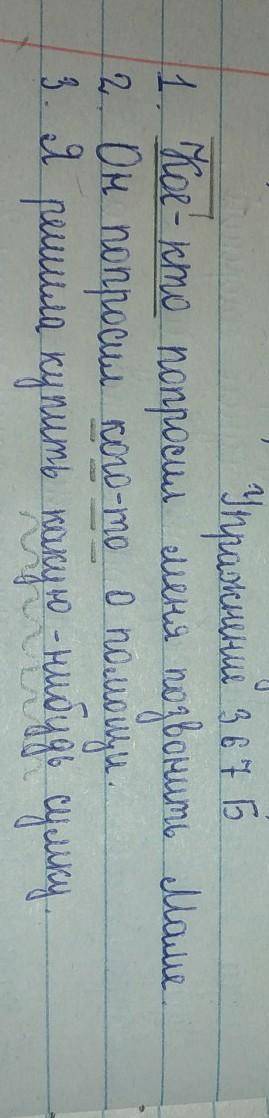 Упражнение 367Б
1. Кое-кто попросил меня позвонить Маме.
2. Он попросил кого-то о помощи.
3. Я решила купить какую-нибудь сумку.